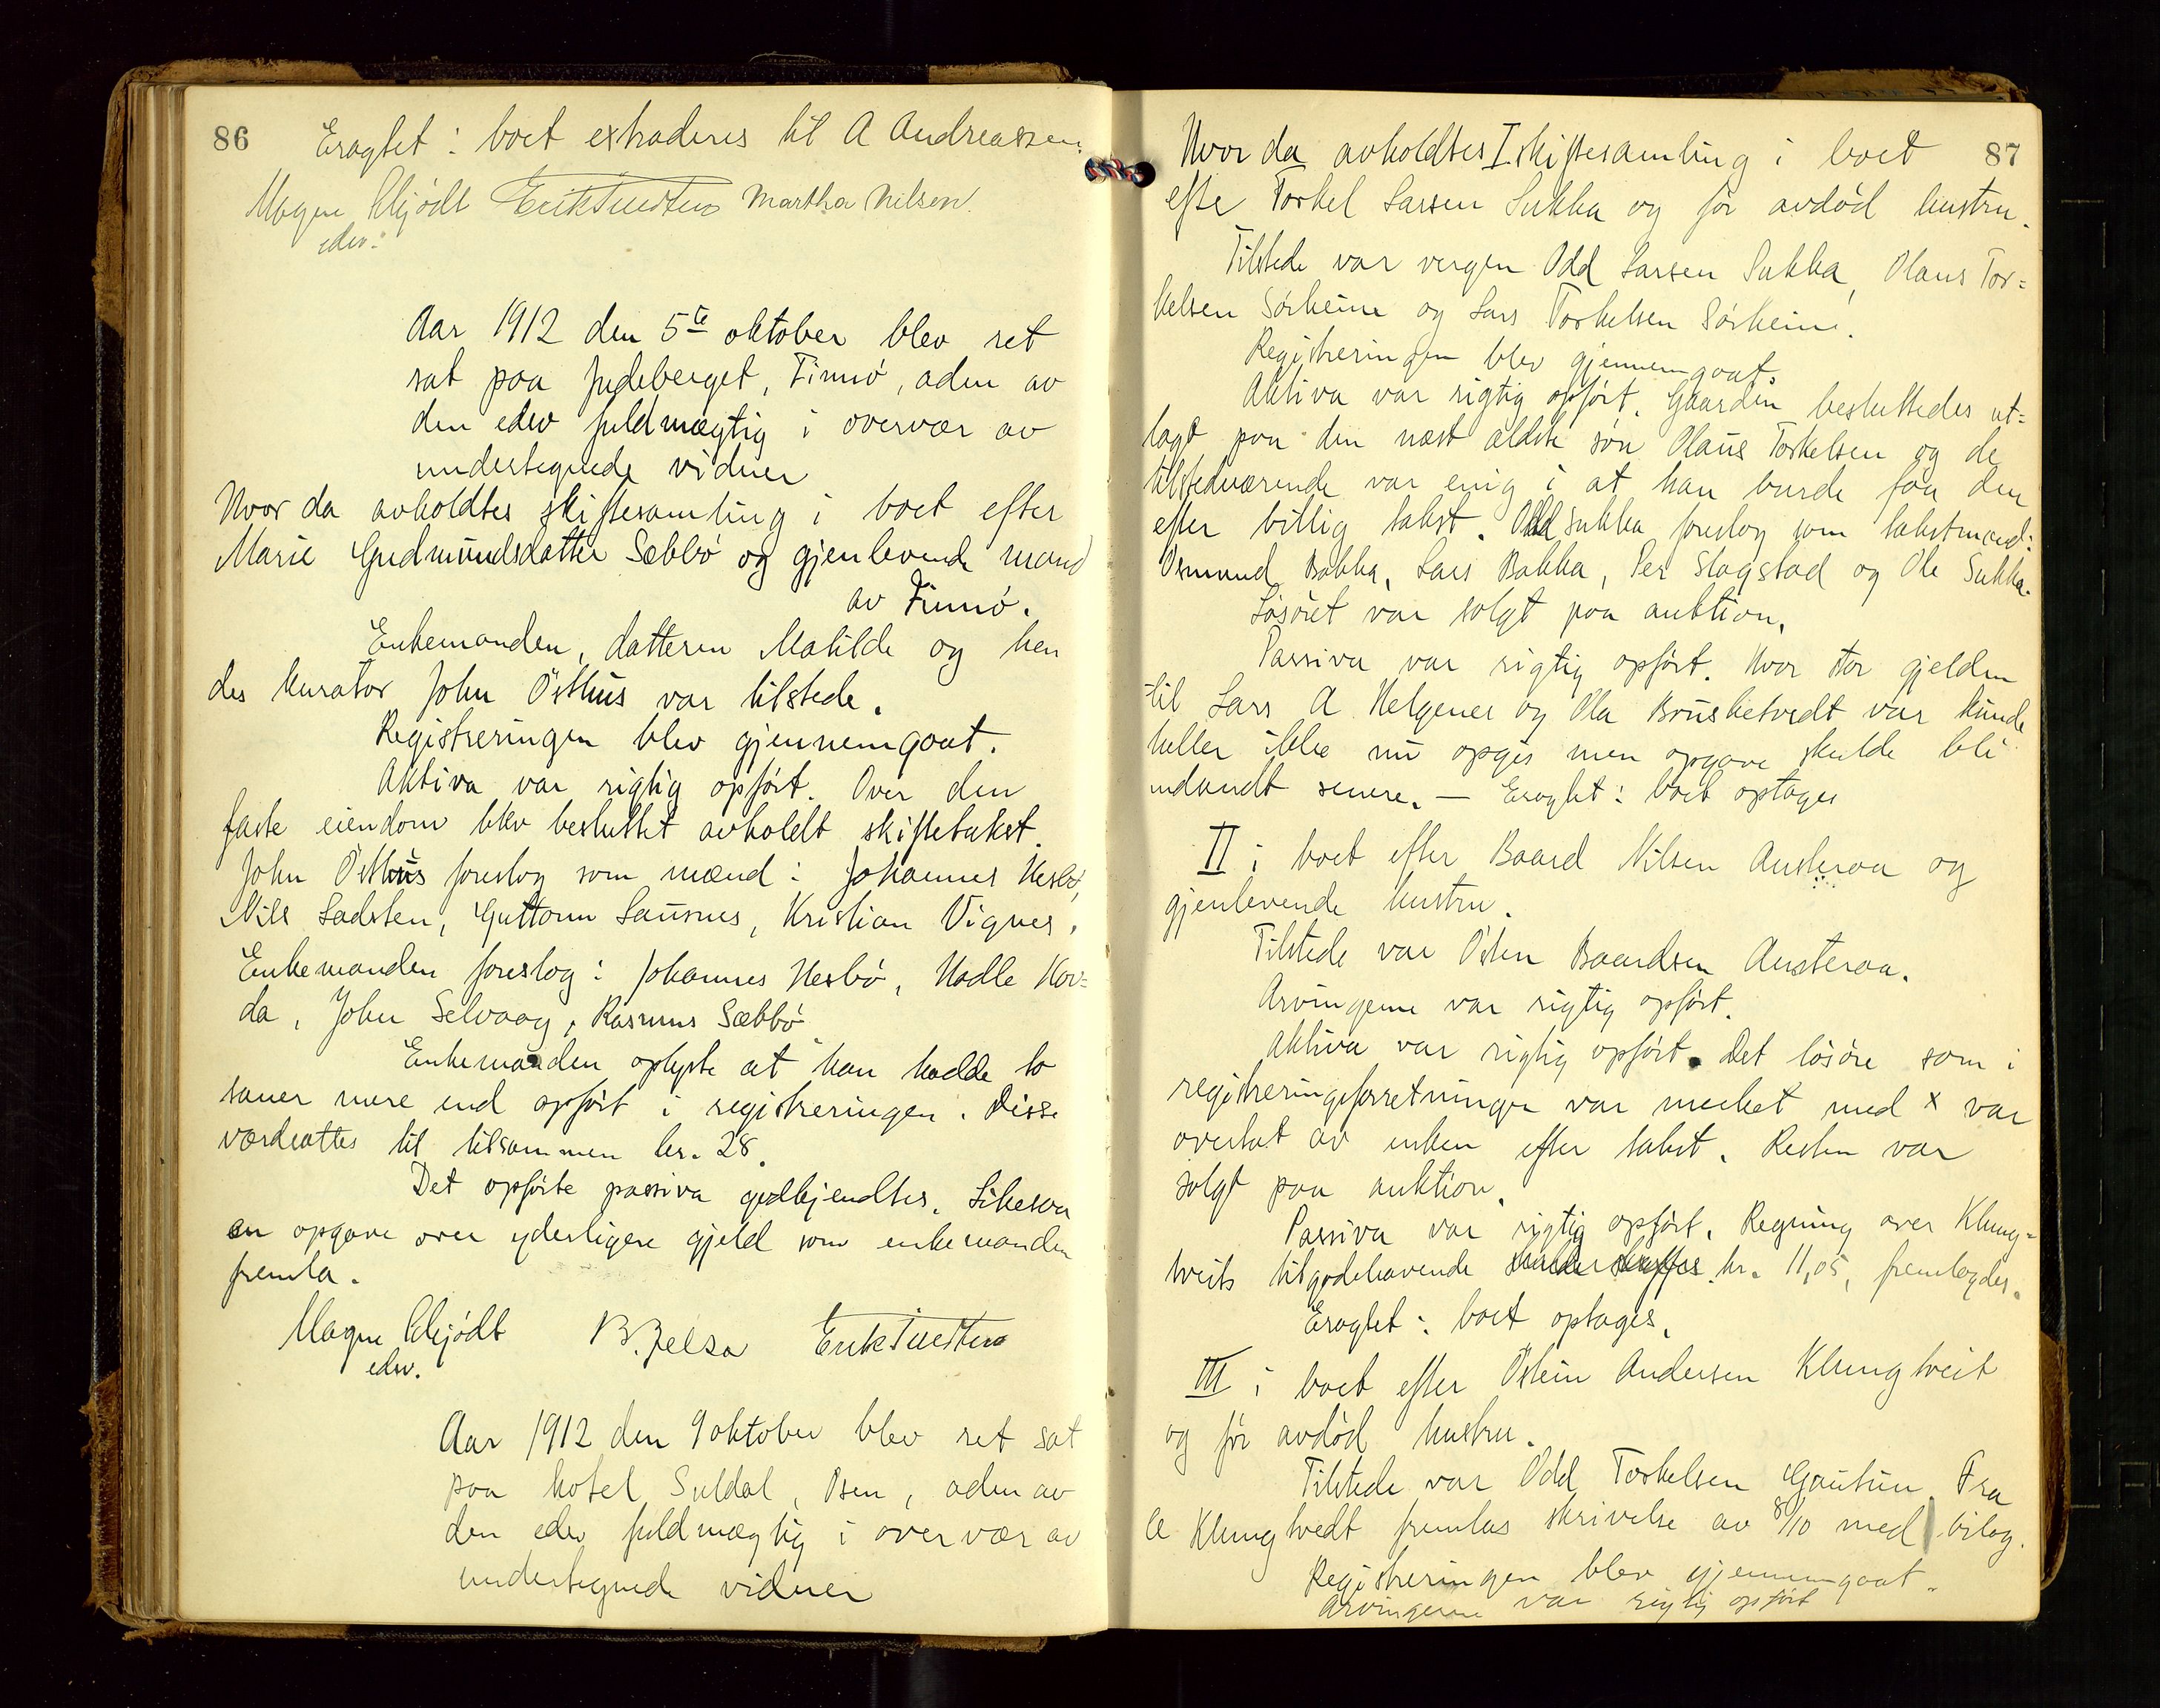 86
Eragtet: boet extraderes til A Andreassen.
Magne Schjödt Erik Tuesteen Martha Nilsen.
edsv.
Aar 1912 den 5te oktober blev ret
sat paa Judeberget, Finnö, adm av
den edsv fuldmægtig i overvær av
undertegnede vidner
Hvor da avholdtes skiftesamling i boet efter
Marie Gudmundsdatter Sæbbö og gjenlevende mand
av Finnö.
Enkemanden, datteren Matilde og hen
des kurator John Östhus var tilstede.
Registreringen blev gjennemgaat.
Aktiva var rigtig opfört. Over den
faste eiendom blev besluttet avholdt skiftetakst.
John Östhus foreslog som mænd: Johannes Hesbö,
Nils Ladsten, Guttorm Lausnes, Kristian Vignes.
Enkemanden foreslog: Johannes Hesbö, Hadle Hov=
da, John Selvaag, Rasmus Sæbbö
Enkemanden oplyste at han hadde to
sauer mere end opfört i registreringen. Disse
værdsattes til tilsammen kr. 28.
Det opförte passiva godkjendtes. Likesaa
en opgave over yderligere gjeld som enkemanden
fremla.
Magne Schjödt B. Jelsa Erik Tuesteen
edsv.
Aar 1912 den 9 oktober blev ret sat
paa hotel Suldal, Osen, adm av
den edsv fuldmægtig i overvær av
undertegnede vidner
87
Hvor da avholdtes I skiftesamling i boet
efter Torkel Larsen Sukka og för avdöd hustru.
Tilstede var vergen Odd Larsen Sukka, Olaus Tor=
kelsen Sörheim og Lars Torkelsen Sörheim.
Registreringen blev gjennemgaat.
Aktiva var rigtig opfört. Gaarden besluttedes ut=
lagt paa den næst ældste sön Olaus Torkelsen og de
tilstedeværende var enig i at han burde faa den
efter billig takst. Odd Sukka foreslog som takstmænd:
Osmund Bakka, Lars Bakka, Per Slagstad og Ole Sukka.
Lösöret var solgt paa auktion.
Passiva var rigtig opfört. Hvor stor gjelden
til Lars A Helgenes og Ola Brusketvedt var kunde
heller ikke nu opgis men opgave skulde bli
indsendt senere. — Eragtet: boet optages
II i boet efter Baard Nilsen Austeraa og
gjenlevende hustru.
Tilstede var Östen Baardsen Austeraa.
Arvingerne var rigtig opfört.
Aktiva var rigtig opfört. Det lösöre som i
registreringsforretningen var merket med x var
overtat av enken efter takst. Resten var
solgt paa auktion.
Passiva var rigtig opfört. Regning over Klung=
tveits tilgodehavende kr. 11,05, fremlagdes.
Eragtet: boet optages.
III i boet efter Östein Andersen Klungtveit
og för avdöd hustru.
Tilstede var Odd Torkelsen Gautun. Fra
A Klungtvedt fremlas skrivelse av 8/10 med 1 bilag.
Registreringen blev gjennemgaat.
Arvingerne var rigtig opfört